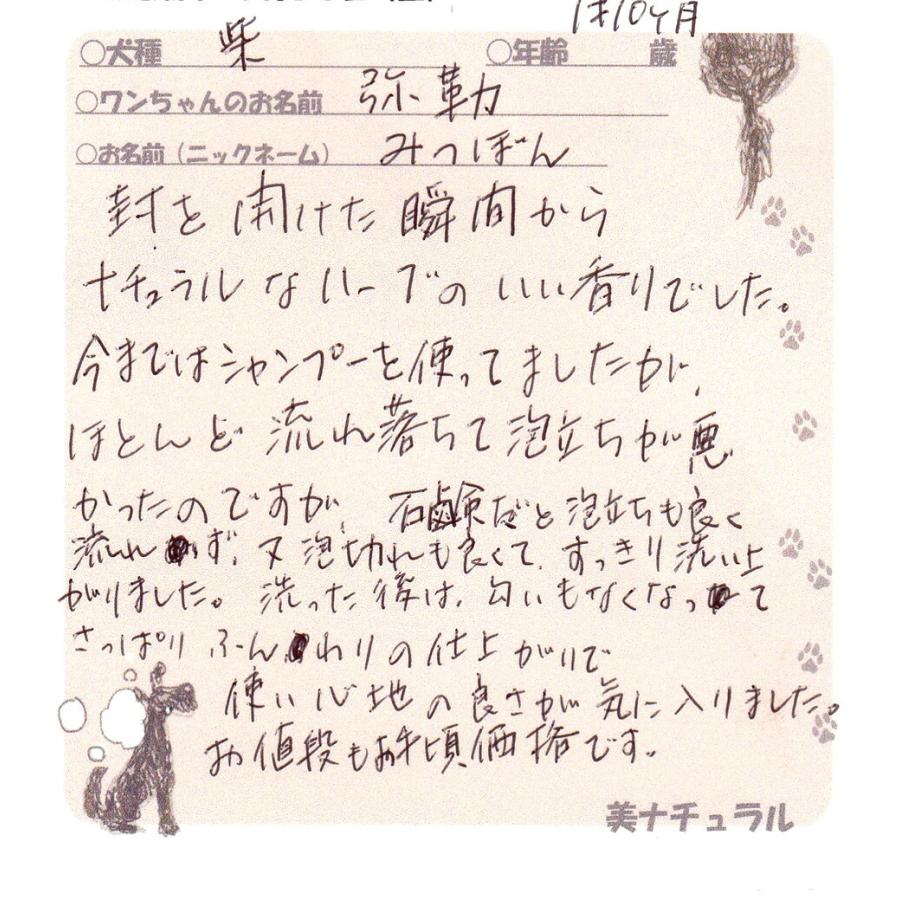 1才10ケ月
○犬種 柴 ○年齢 歳
○ワンちゃんのお名前 弥勒
○お名前（ニックネーム） みつぽん
封を開けた瞬間から
ナチュラルなハーブのいい香りでした。
今まではシャンプーを使ってましたが、
ほとんど流れ落ちて泡立ちが悪
かったのですが、石鹸だと泡立ちも良く
流れず、又泡切れも良くて、すっきり洗い上
がりました。洗った後は、匂いもなくなって
さっぱりふーんわりの仕上がりで
使い心地の良さが気に入りました。
お値段もお手頃価格です。
美ナチュラル